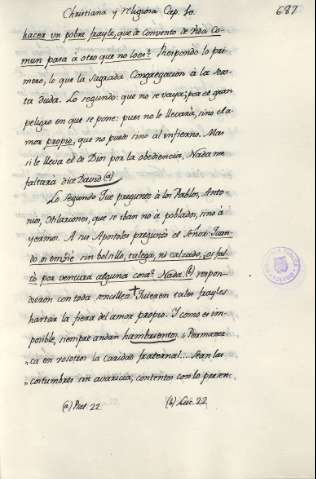 Christiana y religiosa Cap. 10.
687
hacer un pobre frayle, que de Convento de Vida Co-
mun pasa à otro que no loes? Respondo lo pri-
mero, lo que la Sagrada Congregacion à la
duda. Lo segundo: que no se vaya; por el gran
peligro en que se pone: pues no le llevaria, sino el a-
mor propio, que no puede sino al infierno. Mas
si le lleva el de Dios por la obediencia, Nada me
faltarà dice David (a)
Lo segundo que pregunto à los Pablos, Anto-
nios, Hilariones, que se iban no à poblados, sino à
yermos. A sus Apostoles preguntò el Señor: Quan-
do os embiè sin bolsillo, talega, ni calzado, os fal-
tò por ventura alguna cosa? Nada (b) respon-
dieron con toda sencillez. † Quieren tales frayles
hartar la fiera del amor propio. Y como es im-
posible, siempre andan hambrientos. „Permanez-
„ca en vosotros la caridad fraternal... Sean las
„costumbres sin avaricia, contentos con lo presen-
(a) Psal. 22. (b) Luc. 22